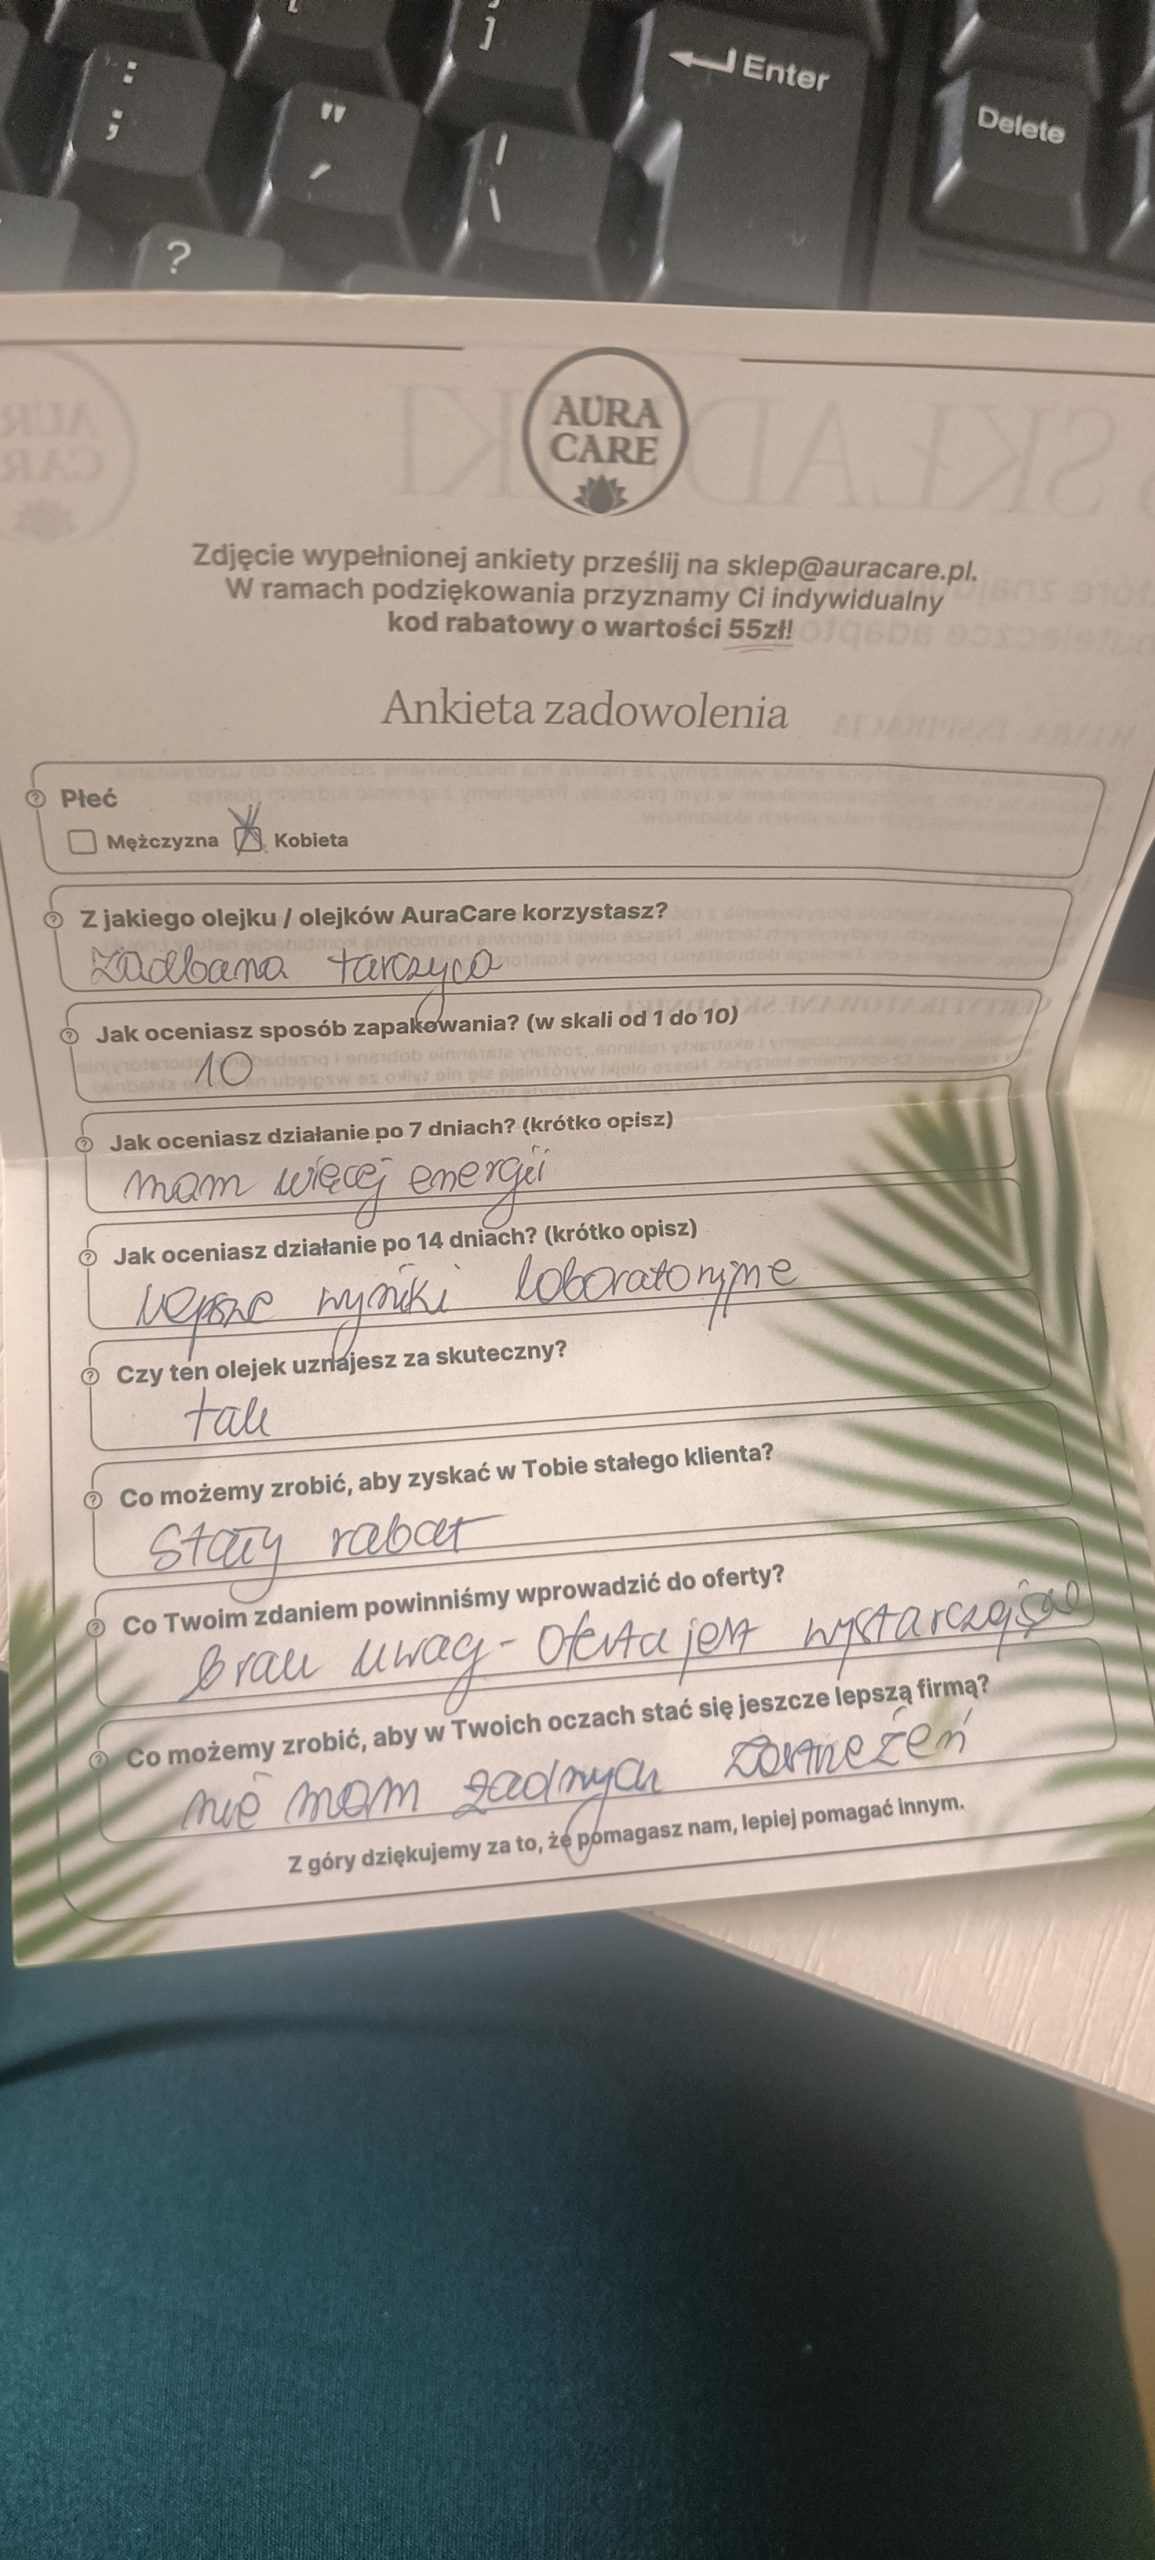 ]
Enter
Delete
:
;
"
'
|
\
?
AURA
CARE
Zdjęcie wypełnionej ankiety prześlij na sklep@auracare.pl.
W ramach podziękowania przyznamy Ci indywidualny
kod rabatowy o wartości 55zł!
Ankieta zadowolenia
Płeć
Mężczyzna Kobieta
Z jakiego olejku / olejków AuraCare korzystasz?
zadbana tarczyca
Jak oceniasz sposób zapakowania? (w skali od 1 do 10)
10
Jak oceniasz działanie po 7 dniach? (krótko opisz)
mam więcej energii
Jak oceniasz działanie po 14 dniach? (krótko opisz)
lepsze wyniki laboratoryjne
Czy ten olejek uznajesz za skuteczny?
tak
Co możemy zrobić, aby zyskać w Tobie stałego klienta?
Stały rabat
Co Twoim zdaniem powinniśmy wprowadzić do oferty?
brak uwag - oferta jest wystarczająca
Co możemy zrobić, aby w Twoich oczach stać się jeszcze lepszą firmą?
nie mam żadnych zastrzeżeń
Z góry dziękujemy za to, że pomagasz nam, lepiej pomagać innym.